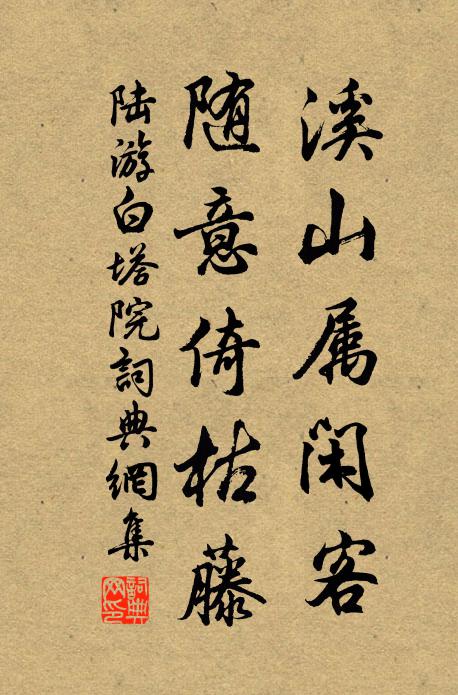 溪山属闲客
随意倚枯藤
陆游白塔院詞典網集
詞典网印